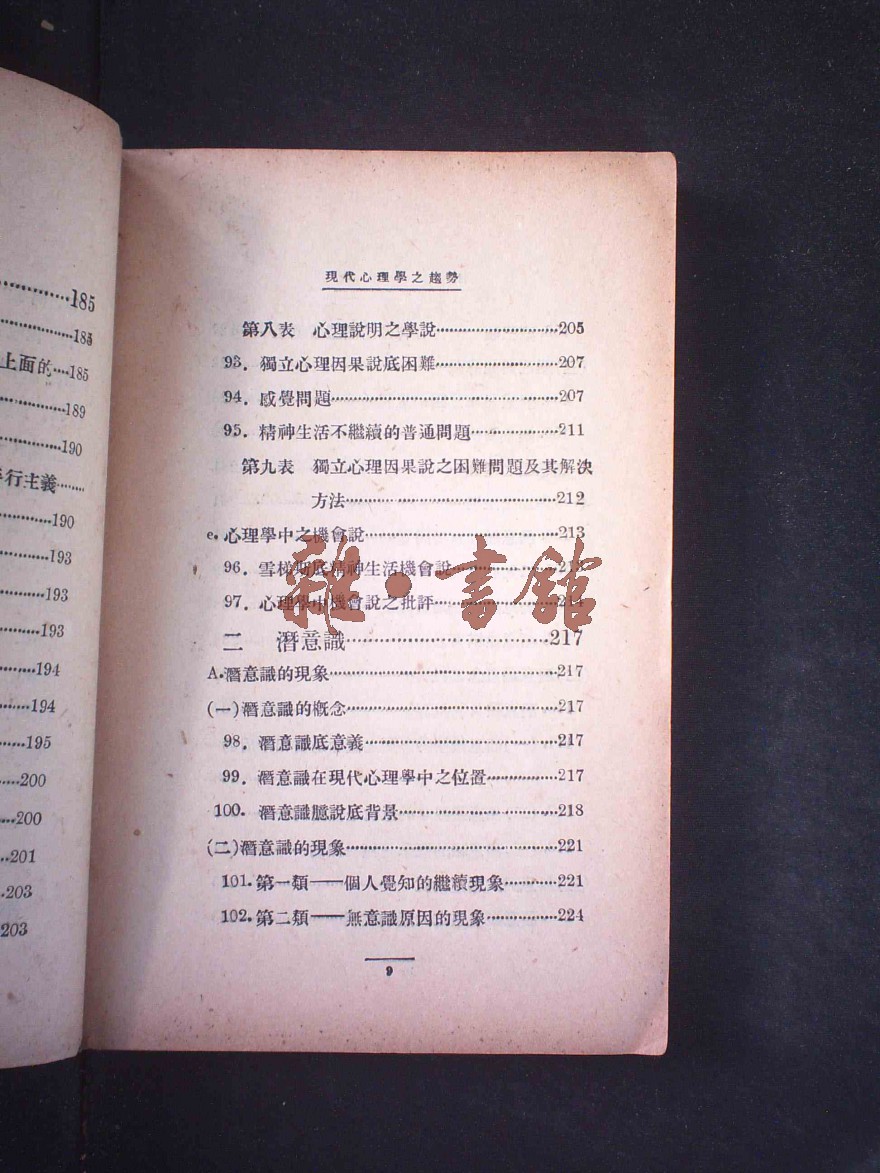 185
185
上面的…185
189
190
行主義……
190
193
193
193
194
194
195
200
200
201
203
203
現代心理學之趨勢
第八表 心理說明之學說…………205
93. 獨立心理因果說底困難…………207
94. 感覺問題…………207
95. 精神生活不繼續的普通問題…………211
第九表 獨立心理因果說之困難問題及其解決
方法…………212
e. 心理學中之機會說…………213
96. 雪梯斯底精神生活機會說…………213
97. 心理學中機會說之批評…………214
雜·書館
二 潛意識…………217
A. 潛意識的現象…………217
(一)潛意識的概念…………217
98. 潛意識底意義…………217
99. 潛意識在現代心理學中之位置…………217
100. 潛意識臆說底背景…………218
(二)潛意識的現象…………221
101. 第一類——個人覺知的繼續現象…………221
102. 第二類——無意識原因的現象…………224
9